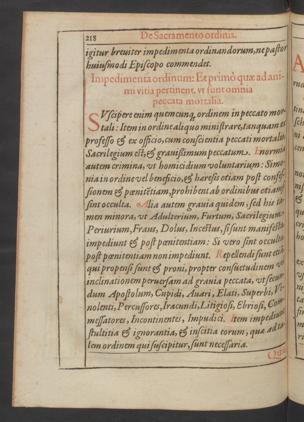 218 De Sacramento ordinis.
igitur breuiter impedimenta ordinandorum, ne pastor
huiusmodi Episcopo commendet.
Impedimenta ordinum: Et primò quæ ad ani-
mi vitia pertinent, vt sunt omnia
peccata mortalia.
SVscipere enim quemcunq, ordinem in peccato mor-
tali: Item in ordine aliquo ministrare, tanquam ex
professo & ex officio, cum conscientia peccati mortalis,
Sacrilegium est, & grauissimum peccatum. Enormia
autem crimina, vt homicidium voluntarium: Simo-
nia in ordine vel beneficio, & hæresis etiam post confes-
sionem & pœnitētiam, prohibent ab ordinibus etiamsi
sint occulta. Alia autem grauia quidem, sed hic ta-
men minora, vt Adulterium, Furtum, Sacrilegium,
Periurium, Fraus, Dolus, Incestus, si sunt manifesta
impediunt & post pœnitentiam: Si vero sint occulta
post pœnitentiam non impediunt. Repellendi sunt etiā
qui propensi sunt & proni, propter consuetudinem vel
inclinationem peruersam ad grauia peccata, vt secun-
dum Apostolum, Cupidi, Auari, Elati, Superbi, Vi-
nolenti, Percussores, Iracundi, Litigiosi, Ebriosi, Com-
messatores, Incontinentes, Impudici. Item impediunt
stultitia & ignorantia, & inscitia eorum, quæ ad ta-
lem ordinem qui suscipitur, sunt necessaria.